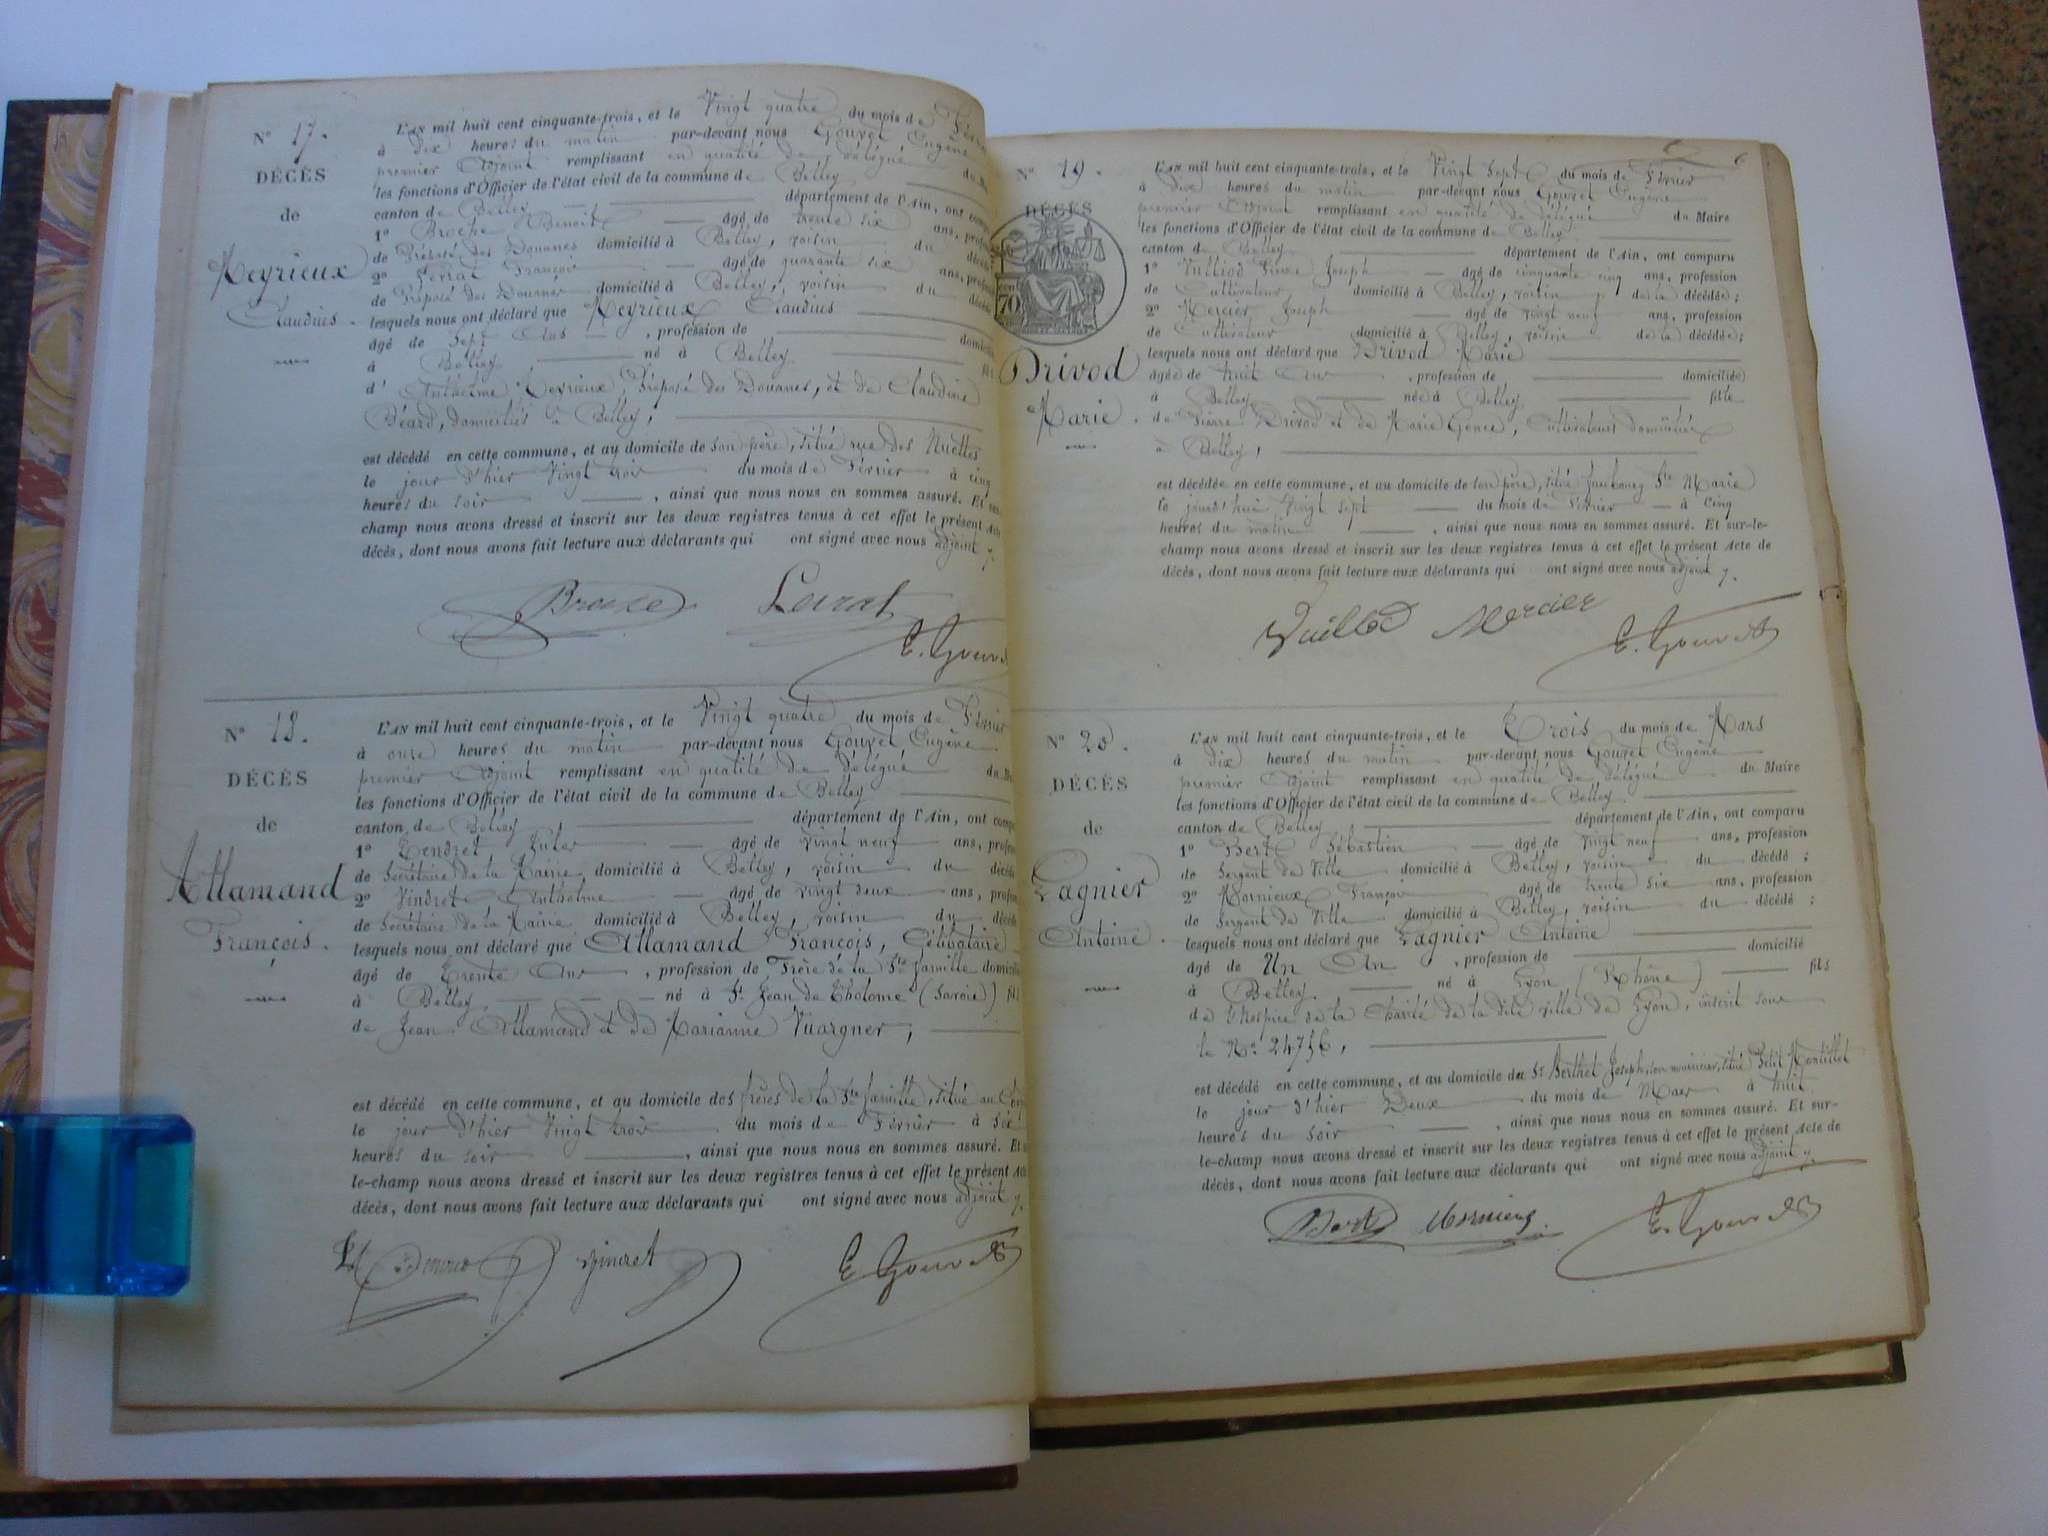 N° 17.
DÉCÈS
de
Meyrieux
Claudius.
L'AN mil huit cent cinquante-trois, et le Vingt quatre du mois de
à Dix heures du matin par-devant nous Gouvet Eugène
premier Adjoint remplissant en qualité de délégué du
les fonctions d'Officier de l'état civil de la commune de Belley
canton de Belley département de l'Ain, ont
1° Benoit âgé de trente six ans,
de Préposé des Douanes domicilié à Belley, voisin du
2° François âgé de quarante six ans,
de Préposé des Douanes domicilié à Belley, voisin du
lesquels nous ont déclaré que Meyrieux Claudius
âgé de Sept Ans, profession de
à Belley né à Belley
d' Anthelme Meyrieux, Préposé des Douanes, et de Claudine
Béard, domiciliés à Belley,
est décédé en cette commune, et au domicile de son père, situé rue des
le jour d'hier Vingt trois du mois de Février à cinq
heures du soir, ainsi que nous nous en sommes assuré. Et
champ nous avons dressé et inscrit sur les deux registres tenus à cet effet le présent
décès, dont nous avons fait lecture aux déclarants qui ont signé avec nous adjoint
E. Gouvet
N° 18.
DÉCÈS
de
Allamand
François.
L'AN mil huit cent cinquante-trois, et le Vingt quatre du mois de Février
à onze heures du matin par-devant nous Gouvet Eugène
premier Adjoint remplissant en qualité de délégué du
les fonctions d'Officier de l'état civil de la commune de Belley
canton de Belley, département de l'Ain, ont
1° Tendret Jules âgé de vingt neuf ans,
de Secrétaire de la Mairie, domicilié à Belley, voisin du
2° Vindret Anthelme âgé de vingt deux ans,
de Secrétaire de la Mairie domicilié à Belley, voisin du
lesquels nous ont déclaré que Allamand François, Célibataire
âgé de Trente Ans, profession de Frère de la Ste famille
à Belley né à St Jean de Tholome (Savoie)
de Jean Allamand et de Marianne
est décédé en cette commune, et au domicile des frères de la Ste famille, situé au
le jour d'hier Vingt trois du mois de Février à
heures du soir, ainsi que nous nous en sommes assuré.
le-champ nous avons dressé et inscrit sur les deux registres tenus à cet effet le présent
décès, dont nous avons fait lecture aux déclarants qui ont signé avec nous adjoint
Vindret E. Gouvet
N° 19.
DÉCÈS
70
Drivod
Marie.
L'AN mil huit cent cinquante-trois, et le Vingt Sept du mois de Février
à Dix heures du matin par-devant nous Gouvet Eugène
premier Adjoint remplissant en qualité de délégué du Maire
les fonctions d'Officier de l'état civil de la commune de Belley
canton de Belley département de l'Ain, ont comparu
1° Joseph âgé de cinquante cinq ans, profession
de Cultivateur domicilié à Belley, voisin de la décédée;
2° Mercier Joseph âgé de vingt neuf ans, profession
de Cultivateur domicilié à Belley, voisin de la décédée;
lesquels nous ont déclaré que Drivod Marie
âgée de huit Ans, profession de domiciliée
à Belley née à Belley fille
de Pierre Drivod et de Marie Gonce, Cultivateurs domiciliés
à Belley,
est décédée en cette commune, et au domicile de son père, situé faubourg Ste Marie
le jourd'hui Vingt Sept du mois de Février à Cinq
heures du matin, ainsi que nous nous en sommes assuré. Et sur-le-
champ nous avons dressé et inscrit sur les deux registres tenus à cet effet le présent Acte de
décès, dont nous avons fait lecture aux déclarants qui ont signé avec nous adjoint
Mercier E. Gouvet
N° 20.
DÉCÈS
de
Lagnier
Antoine.
L'AN mil huit cent cinquante-trois, et le Trois du mois de Mars
à Dix heures du matin par-devant nous Gouvet Eugène
premier Adjoint remplissant en qualité de délégué du Maire
les fonctions d'Officier de l'état civil de la commune de Belley
canton de Belley département de l'Ain, ont comparu
1° Bert Sébastien âgé de vingt neuf ans, profession
de Sergent de Ville domicilié à Belley, voisin du décédé;
2° Mornieux François âgé de trente six ans, profession
de Sergent de Ville domicilié à Belley, voisin du décédé;
lesquels nous ont déclaré que Lagnier Antoine
âgé de Un An, profession de domicilié
à Belley né à Lyon (Rhône) fils
de l'hospice de la Charité de la dite ville de Lyon, inscrit sous
le N°
est décédé en cette commune, et au domicile du Sr Berthet Joseph, son nourricier, situé Petit
le jour d'hier Deux du mois de Mars à huit
heures du soir, ainsi que nous nous en sommes assuré. Et sur-
le-champ nous avons dressé et inscrit sur les deux registres tenus à cet effet le présent Acte de
décès, dont nous avons fait lecture aux déclarants qui ont signé avec nous adjoint
Bert Mornieux E. Gouvet